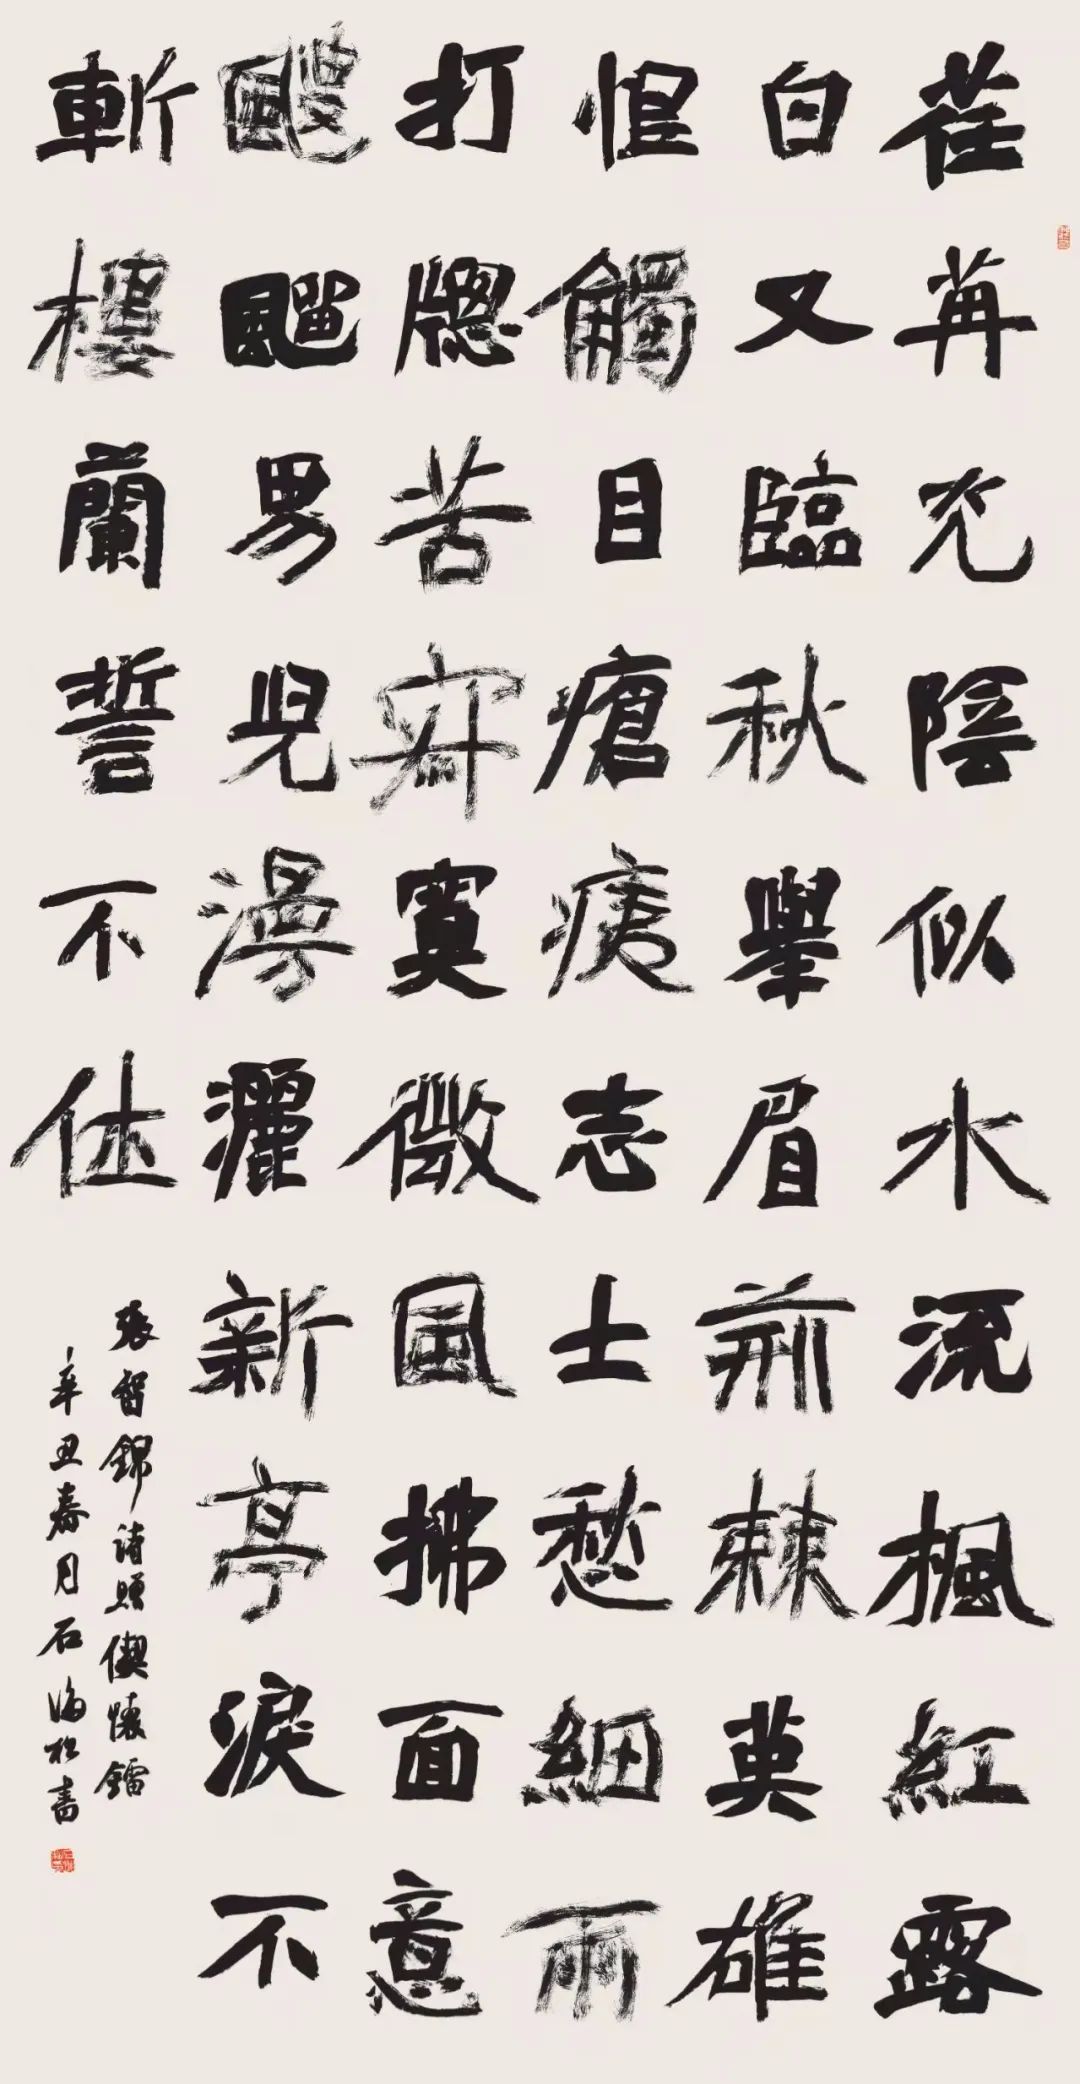 荏苒光陰似水流楓紅露
白又臨秋舉眉荊棘英雄
惶觸目瘡痍志士愁細雨
打牕苦寂寞微風拂面意
颼飀男兒漫灑新亭淚不
斬樓蘭誓不休
張智錦詩懷鐳
辛丑春月石海松書